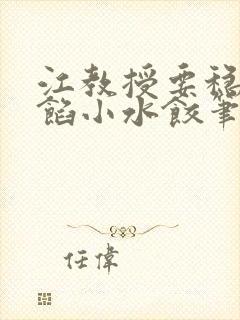 江教授要穩
餡小水餃筆
任偉